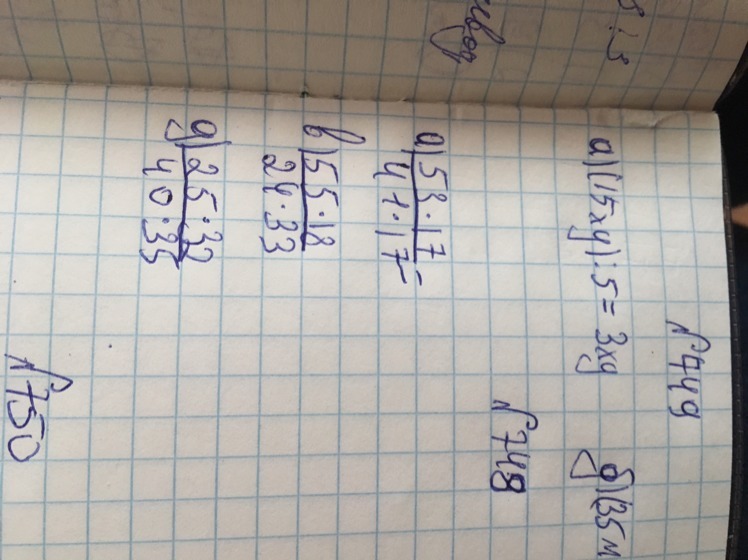 № 749
а) (15xy) : 5 = 3xy б) (35м
№ 748
а) 58·17 =
41·17
в) 55·18
24·33
д) 25·32
40·35
№ 750